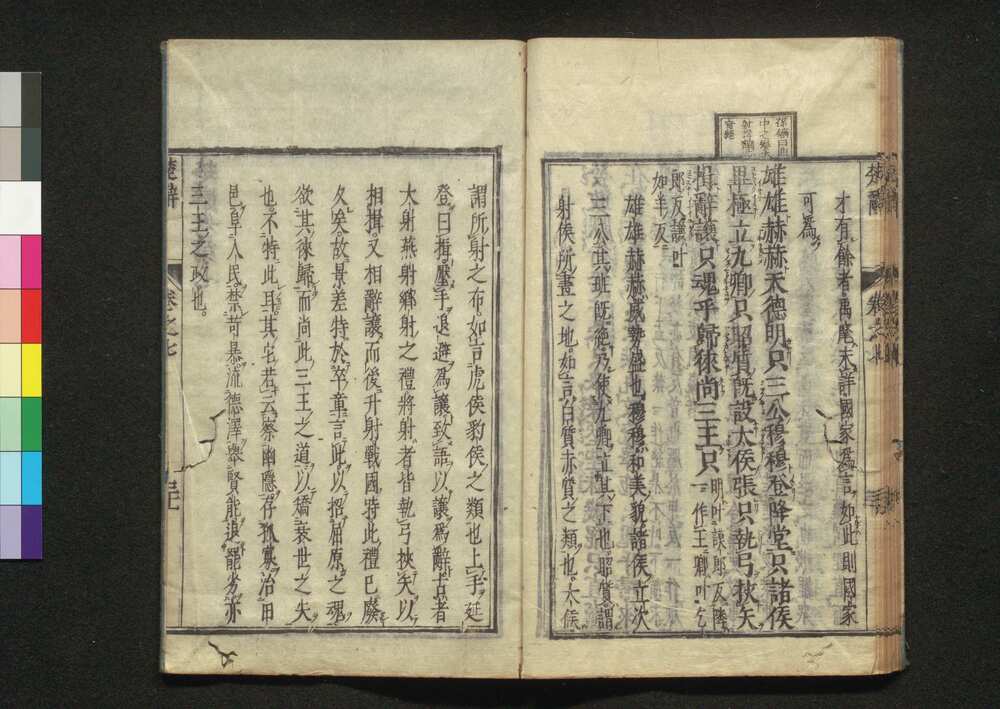 才有餘者禹麾未詳國家爲言如此則國家
可爲
雄雄赫赫天德明只三公穆穆登降堂只諸侯
畢極立九卿只昭質旣設大侯張只執弓挾矢
揖辭讓只魂乎歸徠尚三王只
明叶謨郎反降
一作王卿叶乞
郎反讓叶
如羊反
雄雄赫赫威勢盛也穆穆和美貌諸侯立次
三公其班旣絶乃使九卿立其下也昭質謂
射侯所畫之地如言白質赤質之類也大侯
楚辭
卷之七
謂所射之布如言虎侯豹侯之類也上手延
登曰揖壓手退避爲讓致語以讓爲辭古者
大射燕射鄕射之禮將射者皆執弓挾矢以
相揖又相辭讓而後升射戰國時此禮已廢
久矣故景差特於卒章言此以招屈原之魂
欲其徠歸而尚此三王之道以矯衰世之失
也不特此耳其它若云察幽隱存孤寡治田
邑阜人民禁苛暴流德澤舉賢能退罷劣亦
三王之政也
楚辭
卷之七